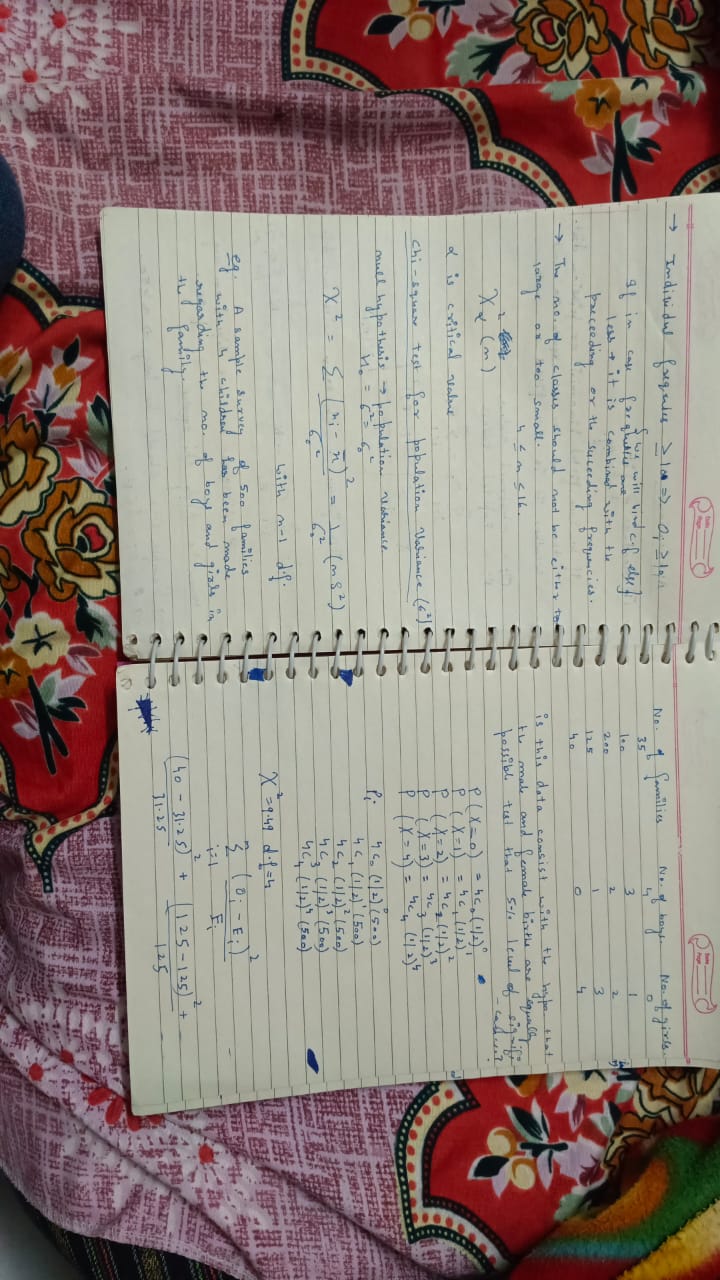 Date
Page
→ Individul frequies ≥ 10 ⇒ Oi ≥ 10
{we will find c.f else}
If in case frequties are
less → it is combined with the
preceeding or the suceeding frequencies.
→ The no. of classes should not be either too
large or too small.
4 ≤ n ≤ 16.
χ²α (n)
α is critical value
Chi-square test for population Variance (σ²)
null hypothesis → population variance
H₀ = σ² = σ₀²
χ² = Σ (xi - x̄)² / σ₀² = 1/σ₀² (ns²)
with n-1 d.f.
eg. A sample survey of 500 families
with 4 children has been made
regarding the no. of boys and girls in
the family.
Date
Page
No. of families No. of boys. No. of girls.
35 4 0
100 3 1
200 2 2
125 1 3
40 0 4
is this data consist with the hypo that
the male and female births are equally
possible test that 5% level of signifi
-cance?
P (X=0) = 4c₀ (1/2)⁰
P (X=1) = 4c₁ (1/2)¹
P (X=2) = 4c₂ (1/2)²
P (X=3) = 4c₃ (1/2)³
P (X=4) = 4c₄ (1/2)⁴
Pi 4c₀ (1/2)⁰ (500)
4c₁ (1/2)¹ (500)
4c₂ (1/2)² (500)
4c₃ (1/2)³ (500)
4c₄ (1/2)⁴ (500)
χ² = 9.49 d.f = 4
n Σ i=1 (Oi - Ei)² / Ei
(40 - 31.25)² / 31.25 + (125 - 125)² / 125 +